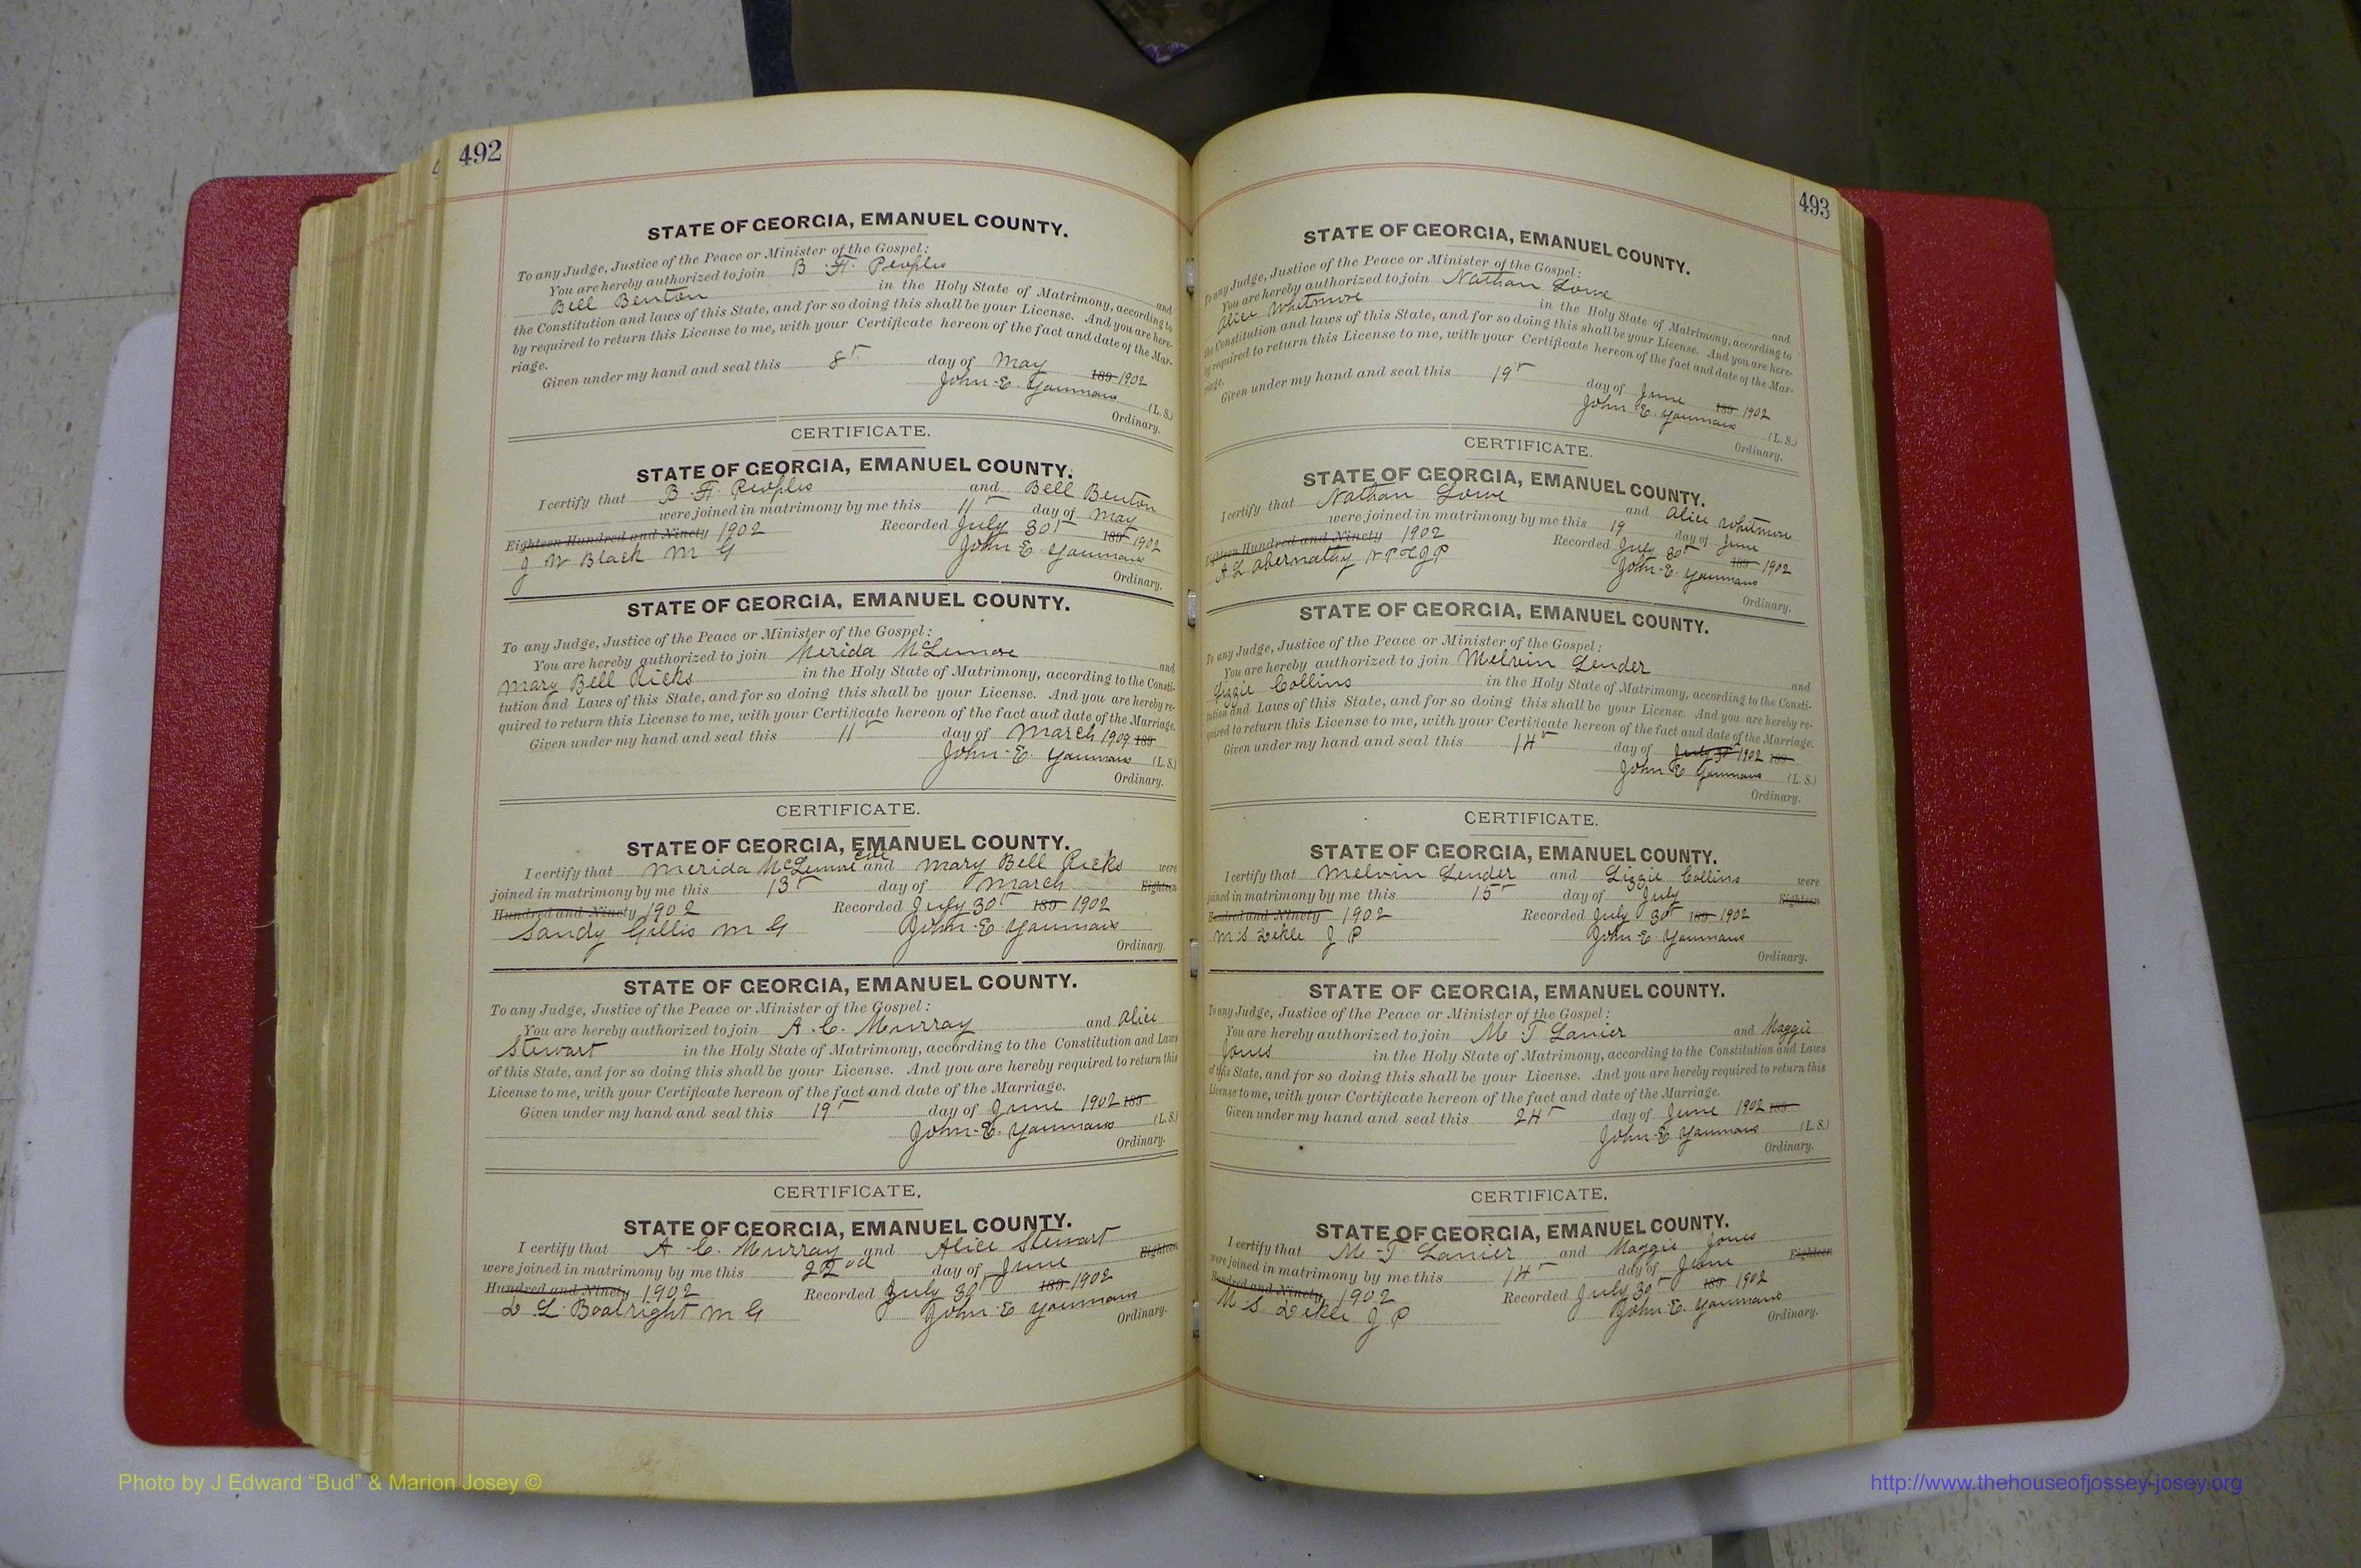 492
STATE OF GEORGIA, EMANUEL COUNTY.
To any Judge, Justice of the Peace or Minister of the Gospel:
You are hereby authorized to join B. F. Peoples and
Bell Benton in the Holy State of Matrimony, according to
the Constitution and laws of this State, and for so doing this shall be your License. And you are here-
by required to return this License to me, with your Certificate hereon of the fact and date of the Mar-
riage.
Given under my hand and seal this 8th day of May 189 1902
John E. Youmans (L. S.)
Ordinary.
CERTIFICATE.
STATE OF GEORGIA, EMANUEL COUNTY.
I certify that B. F. Peoples and Bell Benton
were joined in matrimony by me this 11th day of May
Eighteen Hundred and Ninety 1902 Recorded July 30th 189 1902
J W Black M G John E. Youmans
Ordinary.
STATE OF GEORGIA, EMANUEL COUNTY.
To any Judge, Justice of the Peace or Minister of the Gospel:
You are hereby authorized to join Merida McLemore and
Mary Bell Ricks in the Holy State of Matrimony, according to the Consti-
tution and Laws of this State, and for so doing this shall be your License. And you are hereby re-
quired to return this License to me, with your Certificate hereon of the fact and date of the Marriage.
Given under my hand and seal this 11th day of March 1909 189
John E. Youmans (L. S.)
Ordinary.
CERTIFICATE.
STATE OF GEORGIA, EMANUEL COUNTY.
I certify that Merida McLemore col and Mary Bell Ricks were
joined in matrimony by me this 13th day of March Eighteen
Hundred and Ninety 1902 Recorded July 30th 189 1902
Sandy Gillis M G John E. Youmans
Ordinary.
STATE OF GEORGIA, EMANUEL COUNTY.
To any Judge, Justice of the Peace or Minister of the Gospel:
You are hereby authorized to join A. C. Murray and Alice
Stewart in the Holy State of Matrimony, according to the Constitution and Laws
of this State, and for so doing this shall be your License. And you are hereby required to return this
License to me, with your Certificate hereon of the fact and date of the Marriage.
Given under my hand and seal this 19th day of June 1902 189
John E. Youmans (L. S.)
Ordinary.
CERTIFICATE.
STATE OF GEORGIA, EMANUEL COUNTY.
I certify that A. C. Murray and Alice Stewart
were joined in matrimony by me this 22nd day of June Eighteen
Hundred and Ninety 1902 Recorded July 30th 189 1902
L. L. Boatright M G John E Youmans
Ordinary.
493
STATE OF GEORGIA, EMANUEL COUNTY.
To any Judge, Justice of the Peace or Minister of the Gospel:
You are hereby authorized to join Nathan Lowe and
Alice Whitmore in the Holy State of Matrimony, according to
the Constitution and laws of this State, and for so doing this shall be your License. And you are here-
by required to return this License to me, with your Certificate hereon of the fact and date of the Mar-
riage.
Given under my hand and seal this 19th day of June 189 1902
John E. Youmans (L. S.)
Ordinary.
CERTIFICATE.
STATE OF GEORGIA, EMANUEL COUNTY.
I certify that Nathan Lowe and Alice Whitmore
were joined in matrimony by me this 19 day of June
Eighteen Hundred and Ninety 1902 Recorded July 30th 189 1902
A L Abernathy John E. Youmans
Ordinary.
STATE OF GEORGIA, EMANUEL COUNTY.
To any Judge, Justice of the Peace or Minister of the Gospel:
You are hereby authorized to join Melvin Lender and
Lizzie Collins in the Holy State of Matrimony, according to the Consti-
tution and Laws of this State, and for so doing this shall be your License. And you are hereby re-
quired to return this License to me, with your Certificate hereon of the fact and date of the Marriage.
Given under my hand and seal this 14th day of July 30th 1902 189
John E Youmans (L. S.)
Ordinary.
CERTIFICATE.
STATE OF GEORGIA, EMANUEL COUNTY.
I certify that Melvin Lender and Lizzie Collins were
joined in matrimony by me this 15th day of July Eighteen
Hundred and Ninety 1902 Recorded July 30th 189 1902
M S Dekle J P John E. Youmans
Ordinary.
STATE OF GEORGIA, EMANUEL COUNTY.
To any Judge, Justice of the Peace or Minister of the Gospel:
You are hereby authorized to join M. T Lanier and Maggie
Jones in the Holy State of Matrimony, according to the Constitution and Laws
of this State, and for so doing this shall be your License. And you are hereby required to return this
License to me, with your Certificate hereon of the fact and date of the Marriage.
Given under my hand and seal this 24th day of June 1902 189
John E Youmans (L. S.)
Ordinary.
CERTIFICATE.
STATE OF GEORGIA, EMANUEL COUNTY.
I certify that M. T. Lanier and Maggie Jones
were joined in matrimony by me this 14th day of June Eighteen
Hundred and Ninety 1902 Recorded July 30th 189 1902
M. S. Dekle J P John E. Youmans
Ordinary.
Photo by J Edward “Bud” & Marion Josey ©
http://www.thehouseofjossey-josey.org